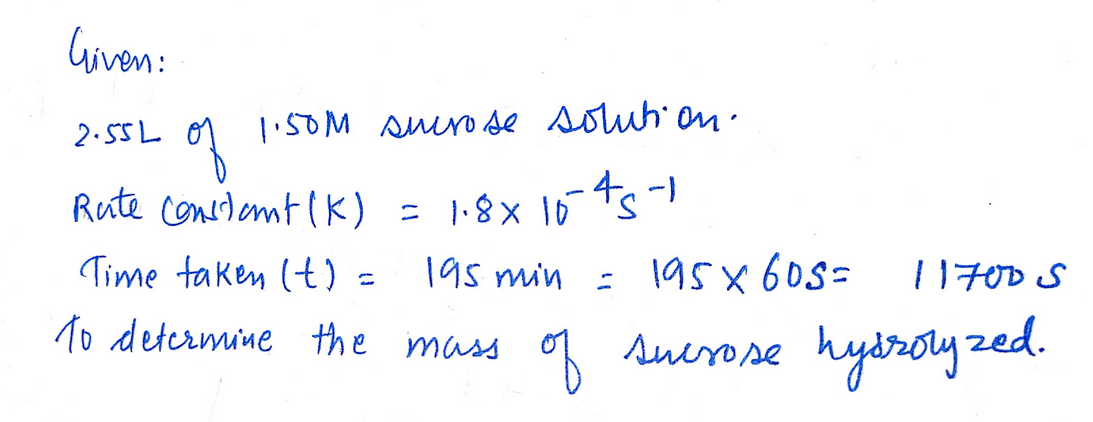 Given:
2.55L of 1.50M sucrose solution.
Rate constant (K) = 1.8 x 10⁻⁴s⁻¹
Time taken (t) = 195 min = 195 x 60s = 11700 s
To determine the mass of sucrose hydrolyzed.